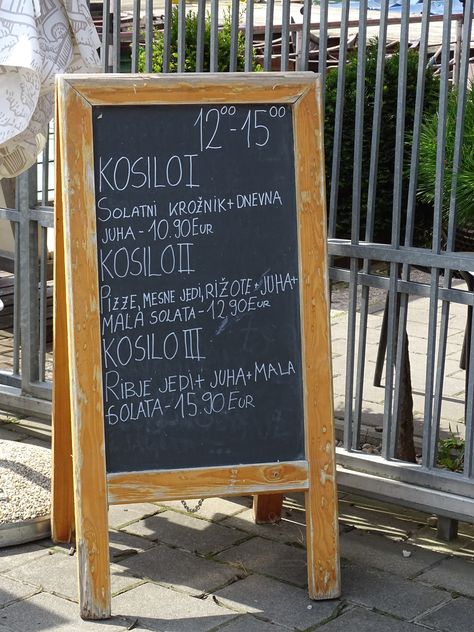 12⁰⁰-15⁰⁰
KOSILO I
SOLATNI KROŽNIK + DNEVNA
JUHA - 10.90 EUR
KOSILO II
PIZZE, MESNE JEDI, RIŽOTE + JUHA +
MALA SOLATA - 12,90 EUR
KOSILO III
RIBJE JEDI + JUHA + MALA
SOLATA - 15.90 EUR